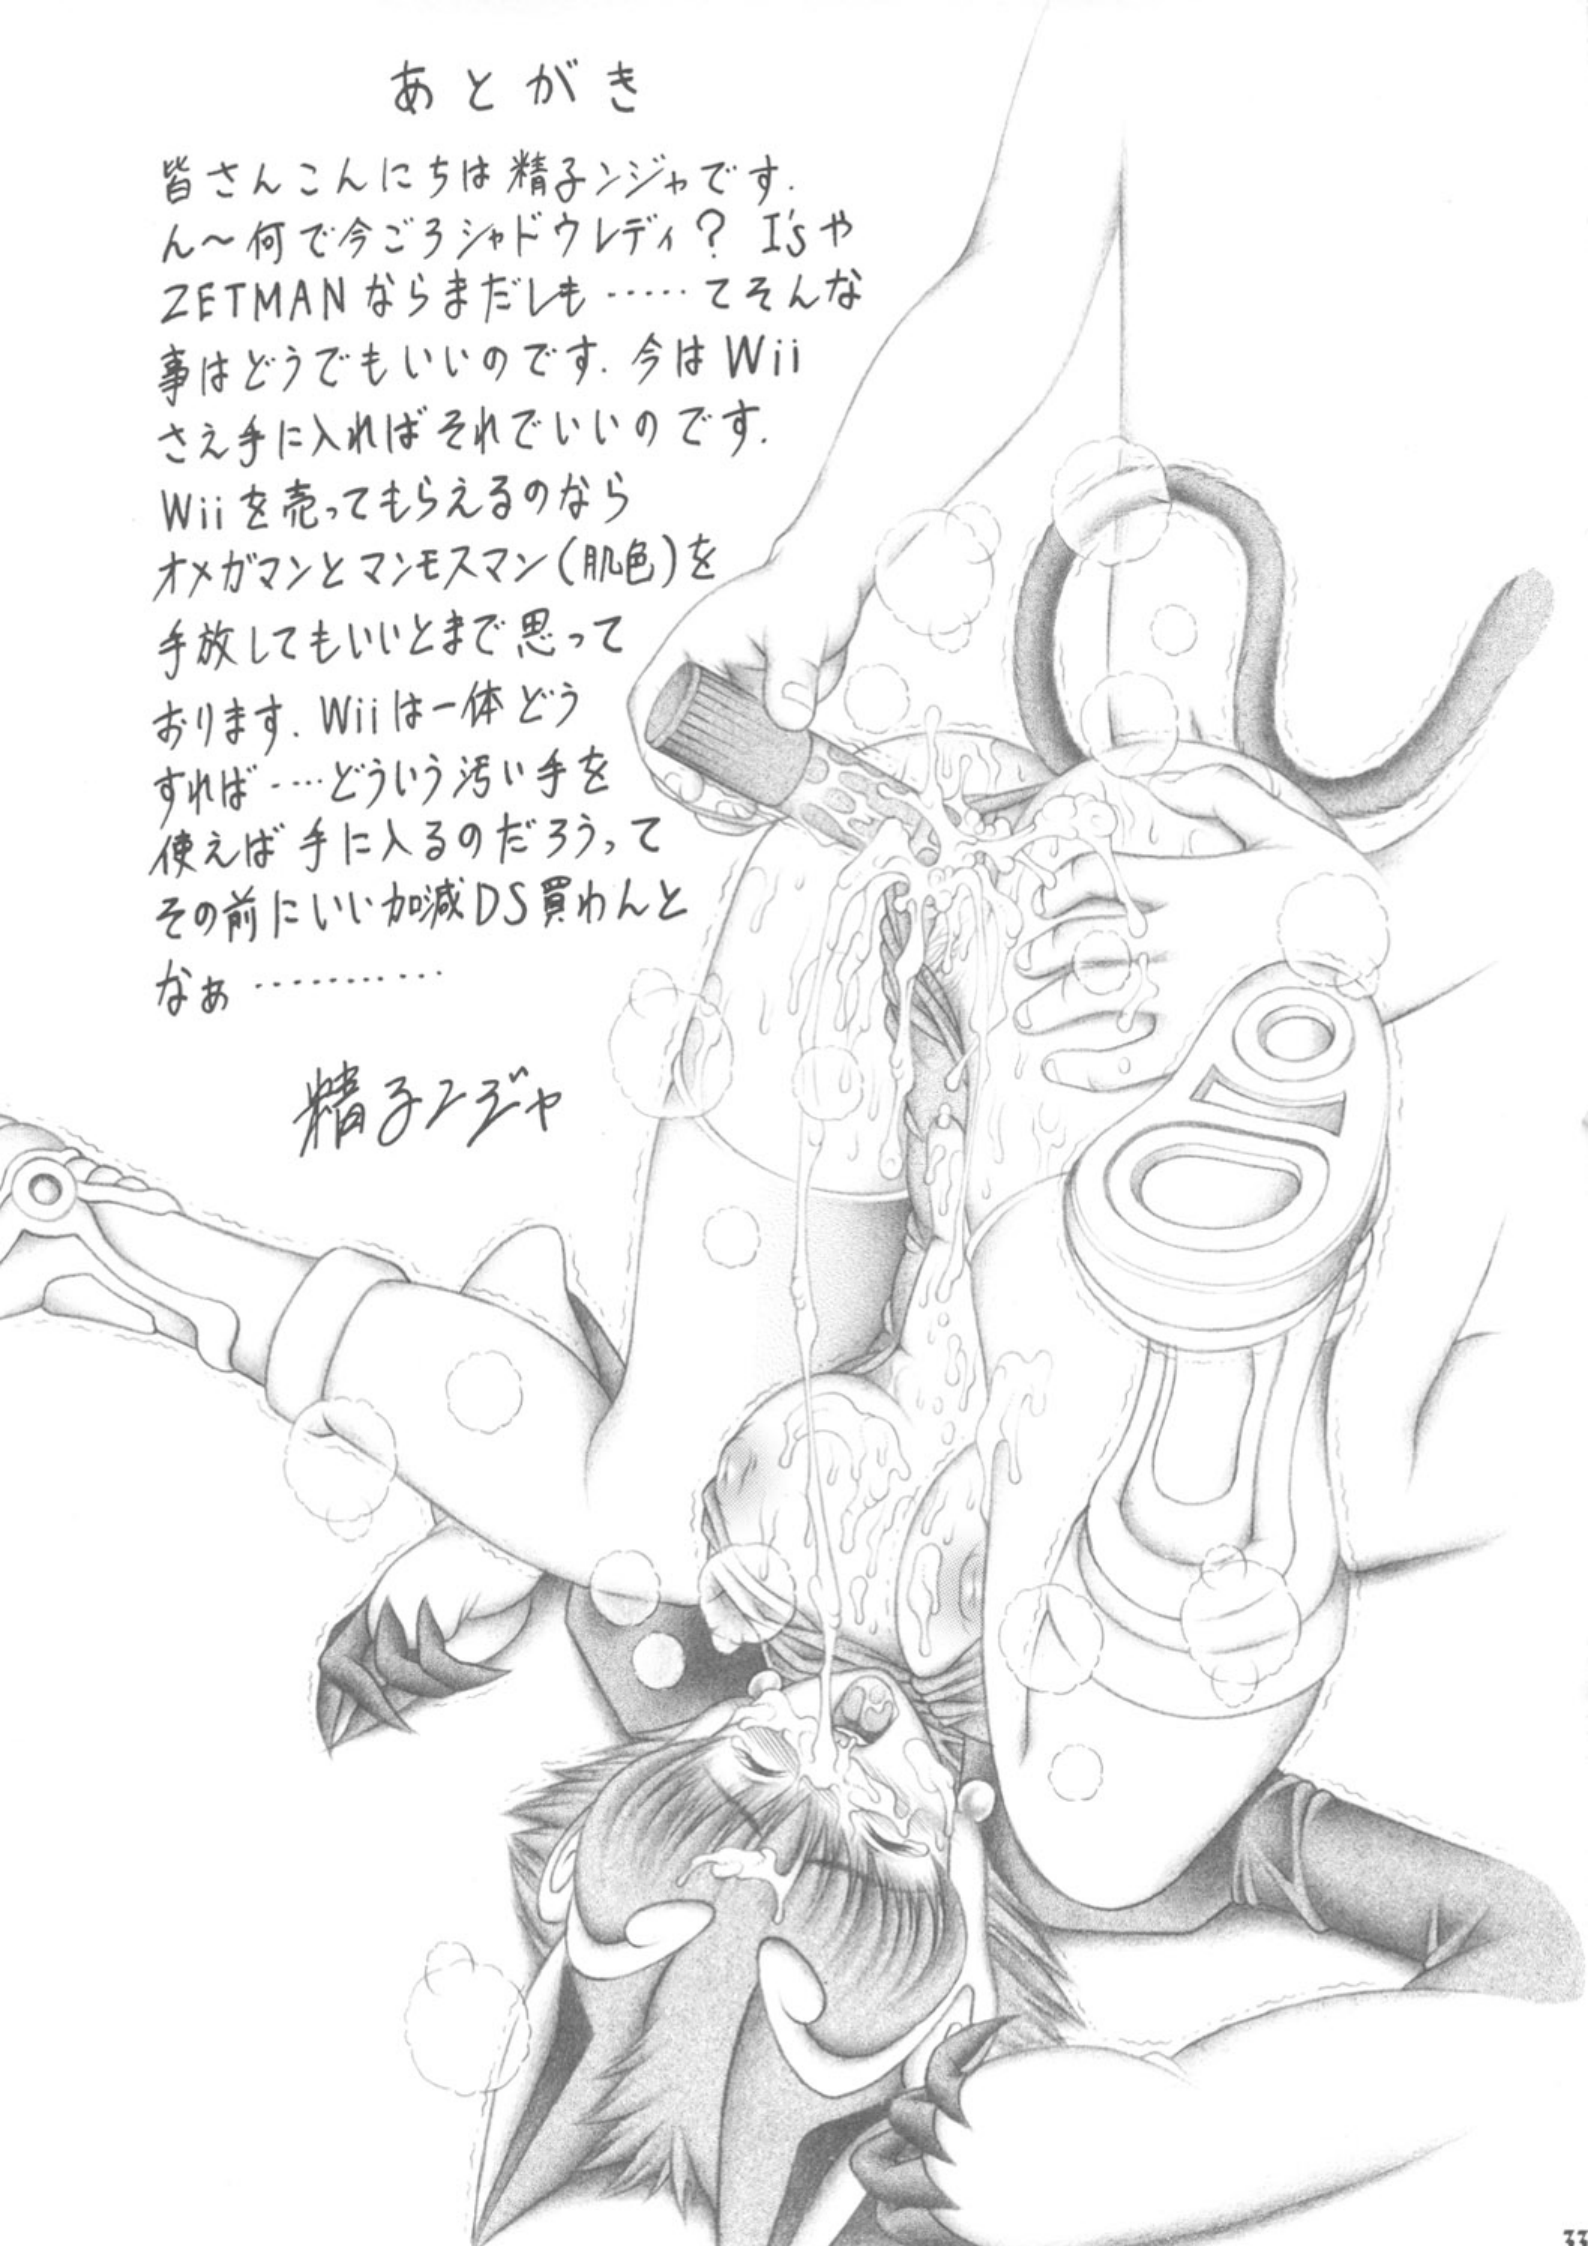 あとがき
皆さんこんにちは精子ンジャです.
ん～何で今ごろシャドウレディ？ I'sや
ZETMANならまだしも……てそんな
事はどうでもいいのです. 今はWii
さえ手に入ればそれでいいのです.
Wiiを売ってもらえるのなら
オメガマンとマンモスマン(肌色)を
手放してもいいとまで思って
おります. Wiiは一体どう
すれば……どういう汚い手を
使えば手に入るのだろうって
その前にいい加減DS買わんと
なぁ…………
精子ンジャ
33